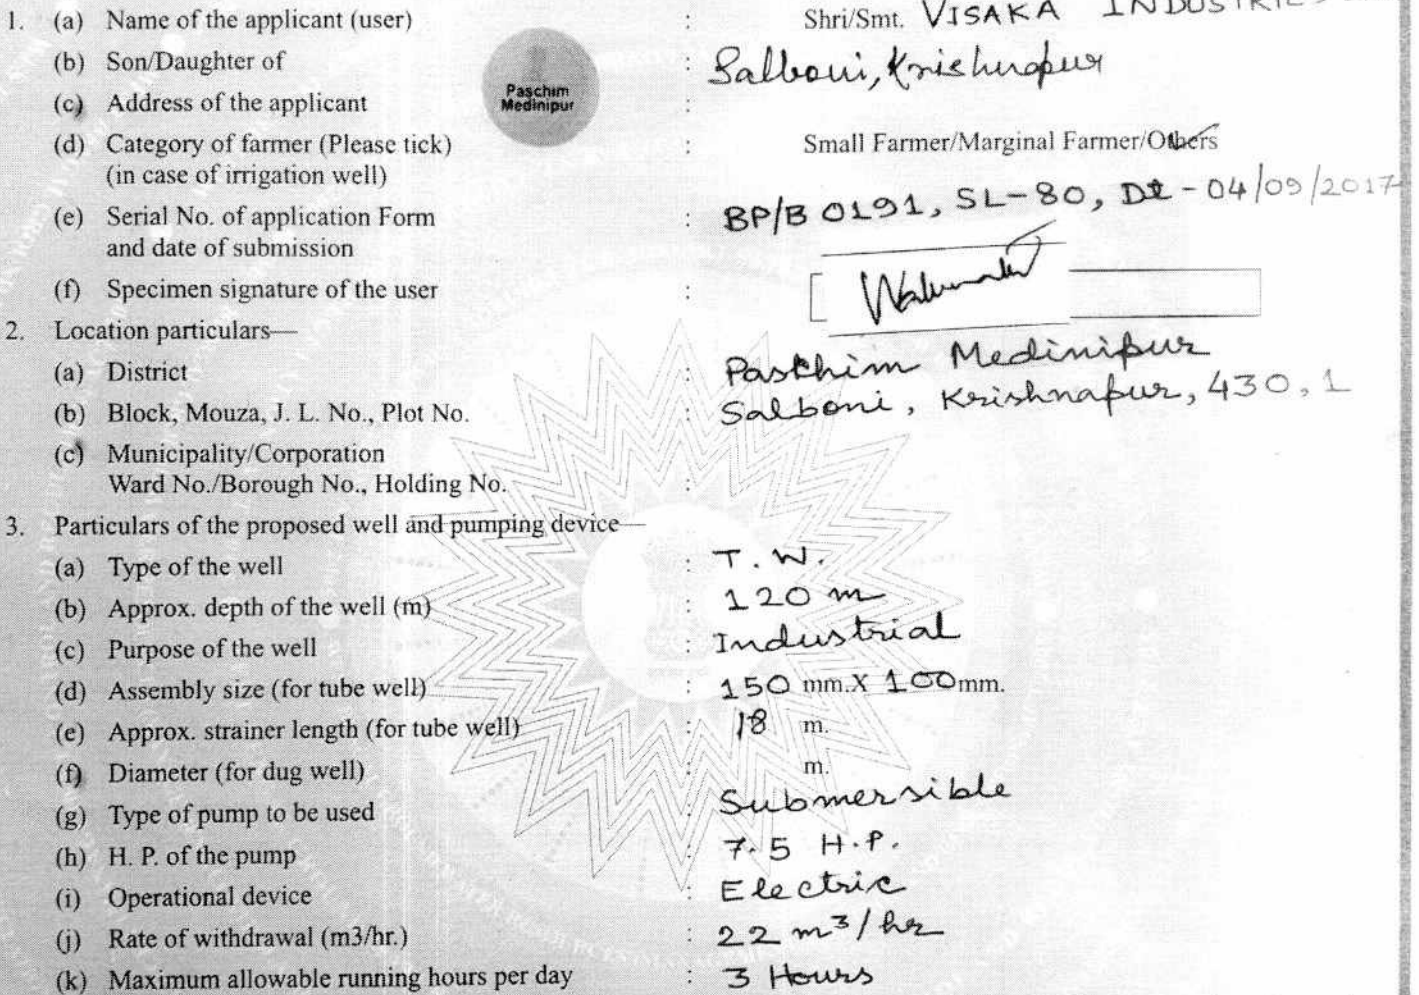 1. (a) Name of the applicant (user) : Shri/Smt. VISAKA INDUSTRIES
(b) Son/Daughter of : Salboni, Krishnapur
Paschim
Medinipur
(c) Address of the applicant :
(d) Category of farmer (Please tick) : Small Farmer/Marginal Farmer/Others
(in case of irrigation well)
(e) Serial No. of application Form : BP/B 0191, SL-80, Dt - 04/09/2017
and date of submission
(f) Specimen signature of the user :
2. Location particulars—
(a) District : Paschim Medinipur
(b) Block, Mouza, J. L. No., Plot No. : Salboni, Krishnapur, 430, 1
(c) Municipality/Corporation
Ward No./Borough No., Holding No. :
3. Particulars of the proposed well and pumping device—
(a) Type of the well : T. W.
(b) Approx. depth of the well (m) : 120 m
(c) Purpose of the well : Industrial
(d) Assembly size (for tube well) : 150 mm.X 100mm.
(e) Approx. strainer length (for tube well) : 18 m.
(f) Diameter (for dug well) : m.
(g) Type of pump to be used : Submersible
(h) H. P. of the pump : 7.5 H.P.
(i) Operational device : Electric
(j) Rate of withdrawal (m3/hr.) : 22 m³/hr
(k) Maximum allowable running hours per day : 3 Hours